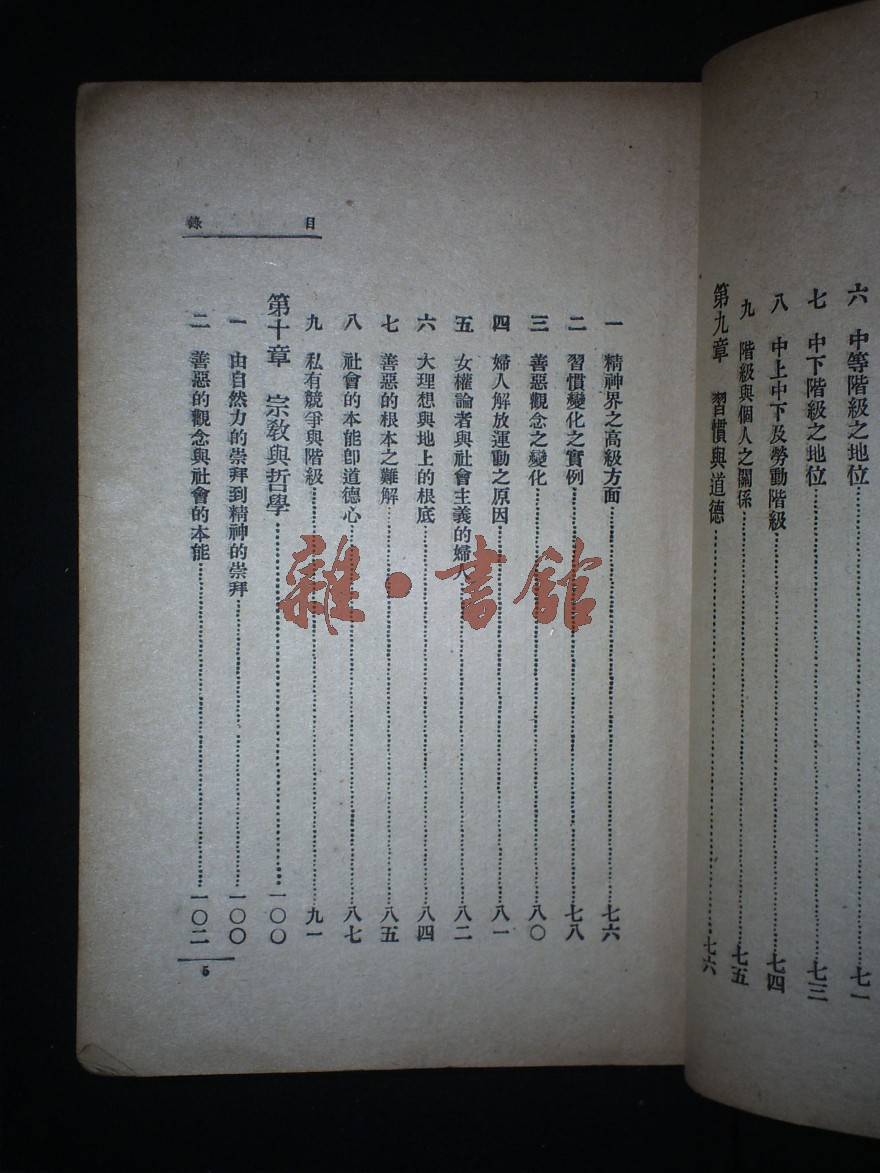 六 中等階級之地位 七一
七 中下階級之地位 七三
八 中上中下及勞動階級 七四
九 階級與個人之關係 七五
第九章 習慣與道德 七六
目錄
一 精神界之高級方面 七六
二 習慣變化之實例 七八
三 善惡觀念之變化 八〇
四 婦人解放運動之原因 八一
五 女權論者與社會主義的婦人 八二
六 大理想與地上的根底 八四
七 善惡的根本之難解 八五
八 社會的本能卽道德心 八七
九 私有競爭與階級 九一
第十章 宗敎與哲學 一〇〇
一 由自然力的崇拜到精神的崇拜 一〇〇
二 善惡的觀念與社會的本能 一〇二
5
雜·書館